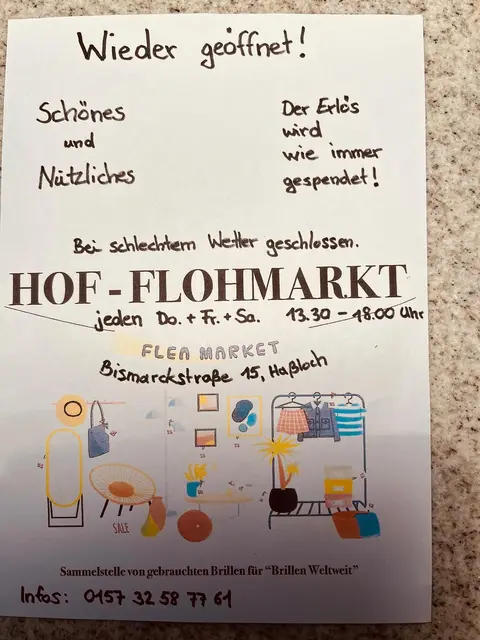 Wieder geöffnet!
Schönes
und
Nützliches
Der Erlös
wird
wie immer
gespendet!
Bei schlechtem Wetter geschlossen.
HOF - FLOHMARKT
jeden Do. + Fr. + Sa. 13.30 - 18.00 Uhr
FLEA MARKET
Bismarckstraße 15, Haßloch
SALE
Sammelstelle von gebrauchten Brillen für "Brillen Weltweit"
Infos: 0157 32 58 77 61